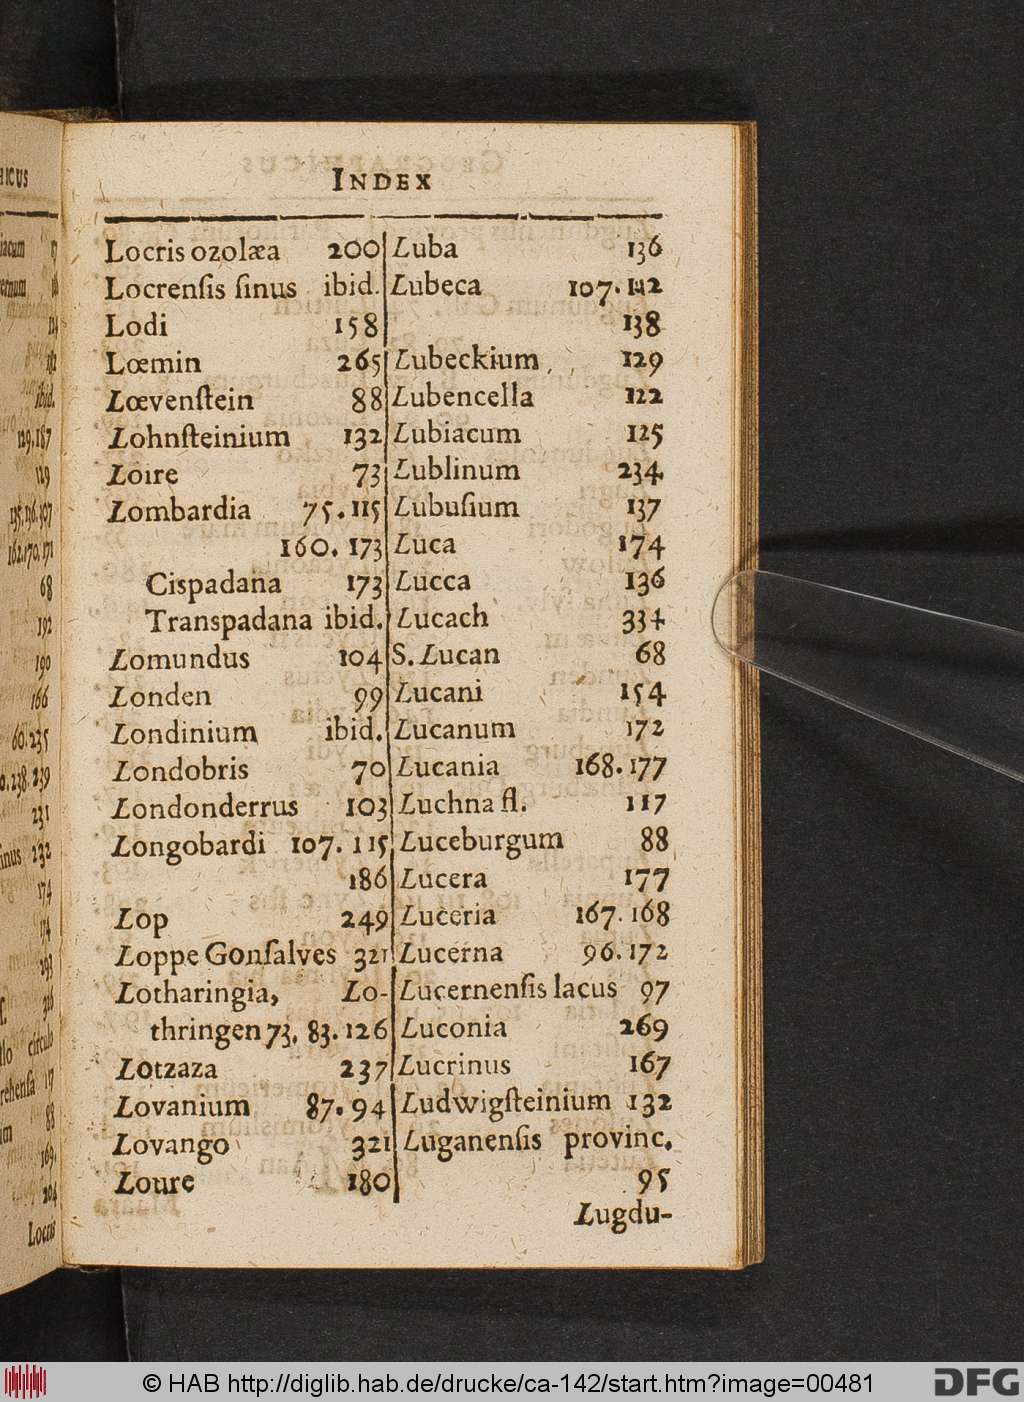 INDEX
Locris ozolæa 200
Locrensis sinus ibid.
Lodi 158
Lœmin 265
Lœvenstein 88
Lohnsteinium 132
Loire 73
Lombardia 75. 115
160. 173
Cispadana 173
Transpadana ibid.
Lomundus 104
Londen 99
Londinium ibid.
Londobris 70
Londonderrus 103
Longobardi 107. 115
186
Lop 249
Loppe Gonsalves 321
Lotharingia, Lo-
thringen 73. 83. 126
Lotzaza 237
Lovanium 87. 94
Lovango 321
Loure 180
Luba 136
Lubeca 107. 112
138
Lubeckium 129
Lubencella 122
Lubiacum 125
Lublinum 234
Lubusium 137
Luca 174
Lucca 136
Lucach 334
S. Lucan 68
Lucani 154
Lucanum 172
Lucania 168. 177
Luchna fl. 117
Luceburgum 88
Lucera 177
Luceria 167. 168
Lucerna 96. 172
Lucernensis lacus 97
Luconia 269
Lucrinus 167
Ludwigsteinium 132
Luganensis provinc.
95
Lugdu-
© HAB http://diglib.hab.de/drucke/ca-142/start.htm?image=00481
DFG